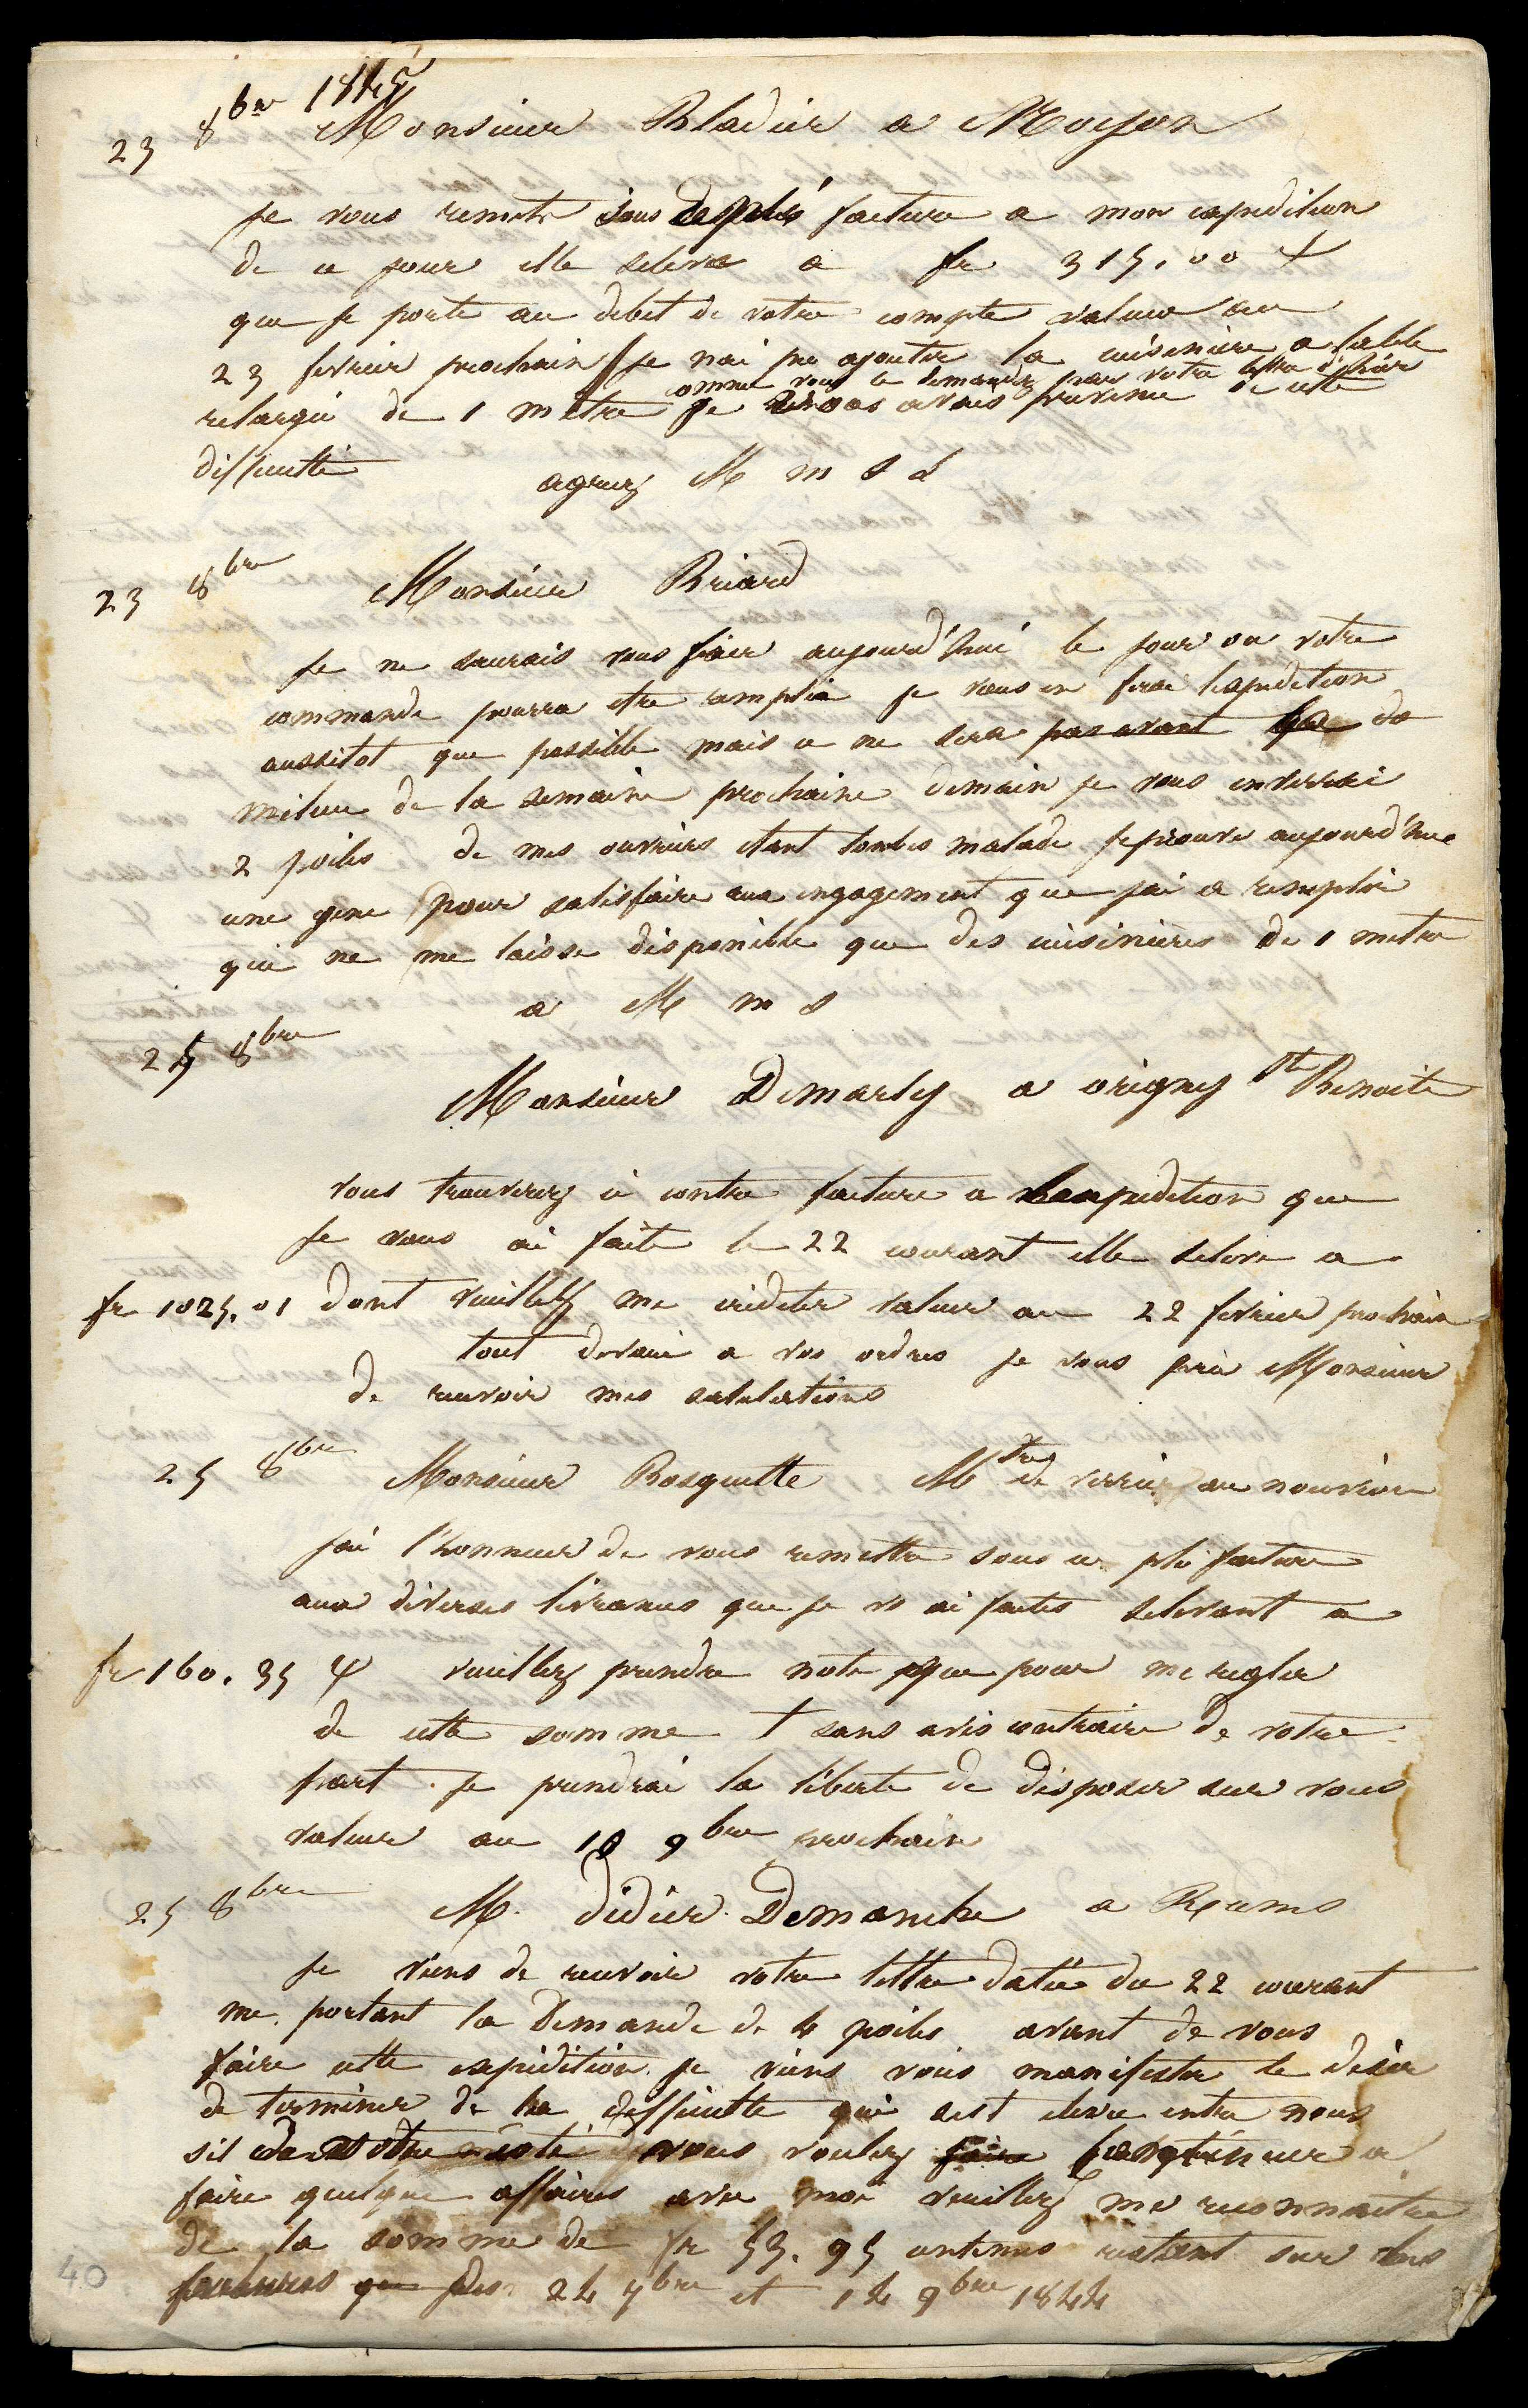 23 8bre 1845
Monsieur Bladier a Noyon
je vous remets sous ce plis facture a mon expedition
de ce jour elle seleve a fr 315.00
que je porte au debet de votre compte valeur au
23 fevrier prochain je nai pu ajouter la cuisiniere a sable
comme vous le demandez par votre lettre d'hier
relargie de 1 metre je vous avais prevenu de cette
difficulté
agreez M m s d
23 8bre
Monsieur Briard
je ne saurais vous fixer aujourd'hui le jour ou votre
commande pourra etre remplie je vous en ferai lexpedition
aussitot que possible mais ce ne sera pas avant le
milieu de la semaine prochaine demain je vous enverrai
2 poiles de mes ouvriers etant tombes malade jeprouve aujourd'hui
une gene pour satisfaire aux engagement que jai a remplir
qui ne me laisse disponible que des cuisinieres de 1 metre
a M m s
25 8bre
Monsieur Demarly a origny Ste Benoite
vous trouverez ci contre facture a lexpedition que
je vous ai faite le 22 courant elle seleve a
fr 1025.01 dont veuillez me crediter valeur au 22 fevrier prochain
tout devoué a vos ordres je vous prie Monsieur
de recevoir mes salutations
25 8bre Monsieur Bosquette Mtre de verrie au nouvion
jai l'honneur de vous remettre sous ce pli facture
aux diverses livrances que je vs ai faites selevant a
fr 160.35 veuillez prendre note que pour me regler
de cette somme sans avis contraire de votre
part je prendrai la liberté de disposer sur vous
valeur au 10 9bre prochain
25 8bre M. Didier Demanche a Reims
je viens de recevoir votre lettre datée du 22 courant
me portant la Demande de 4 poiles avant de vous
faire cette expédition je viens vous manifester le désir
de terminer de la difficulté qui sest elevée entre nous
sil vous voulez faire continuer a
faire quelque affaires avec moi veuillez me reconnaitre
de la somme de fr 53.95 centimes restant sur les
factures des 24 7bre et 14 9bre 1844
40